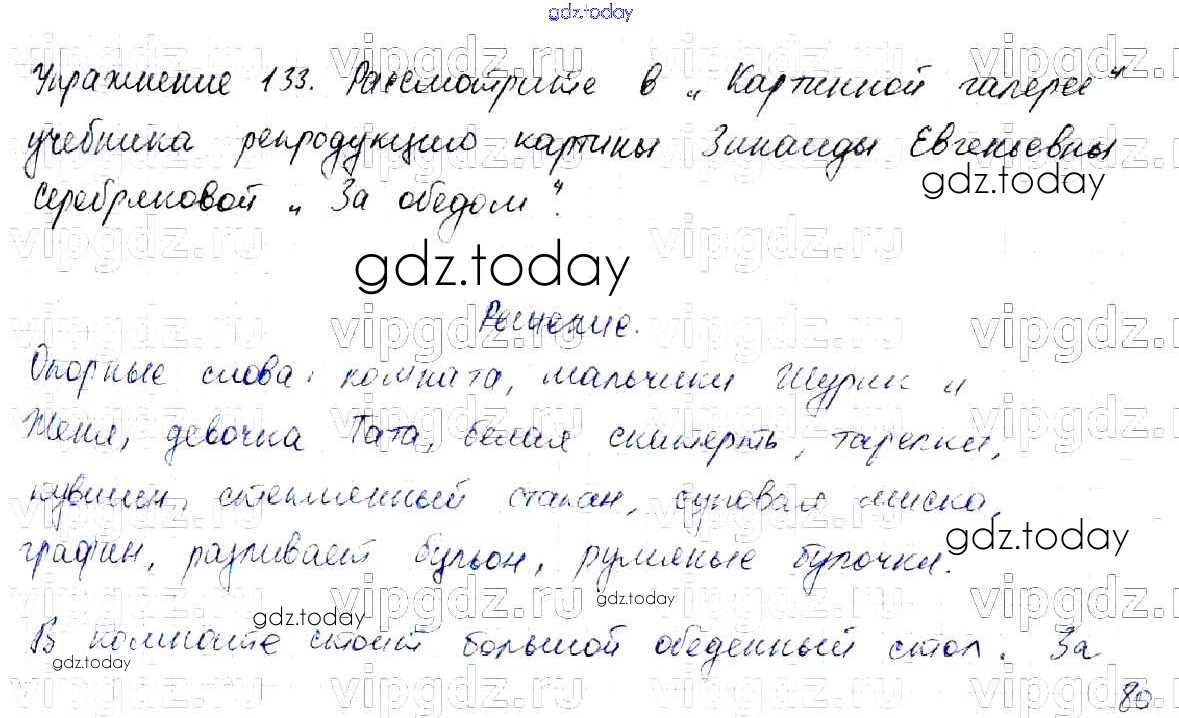 gdz.today
Упражнение 133. Рассмотрите в „Картинной галерее“
учебника репродукцию картины Зинаиды Евгеньевны
gdz.today
Серебряковой „За обедом“.
gdz.today
Решение.
Опорные слова: комната, мальчики Шурик и
Женя, девочка Тата, белая скатерть, тарелки,
кувшин, стеклянный стакан, суповая миска,
gdz.today
графин, разливает бульон, румяные булочки.
gdz.today
gdz.today
В комнате стоит большой обеденный стол. За
gdz.today
80
vipgdz.ru